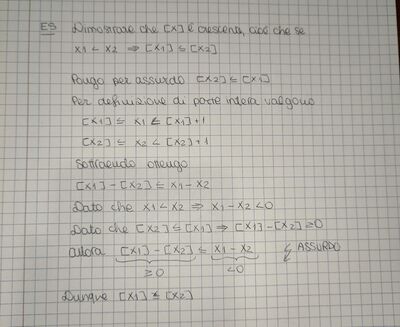 ES Dimostrare che [x] è crescente, cioè che se
x1 < x2 ⇒ [x1] ≤ [x2]
Pongo per assurdo [x2] ≤ [x1]
Per definizione di parte intera valgono
[x1] ≤ x1 < [x1]+1
[x2] ≤ x2 < [x2]+1
Sottraendo ottengo
[x1] - [x2] ≤ x1 - x2
Dato che x1 < x2 ⇒ x1 - x2 < 0
Dato che [x2] ≤ [x1] ⇒ [x1] - [x2] ≥ 0
allora [x1] - [x2] ≤ x1 - x2 ASSURDO
≥0 <0
Dunque [x1] ≤ [x2]